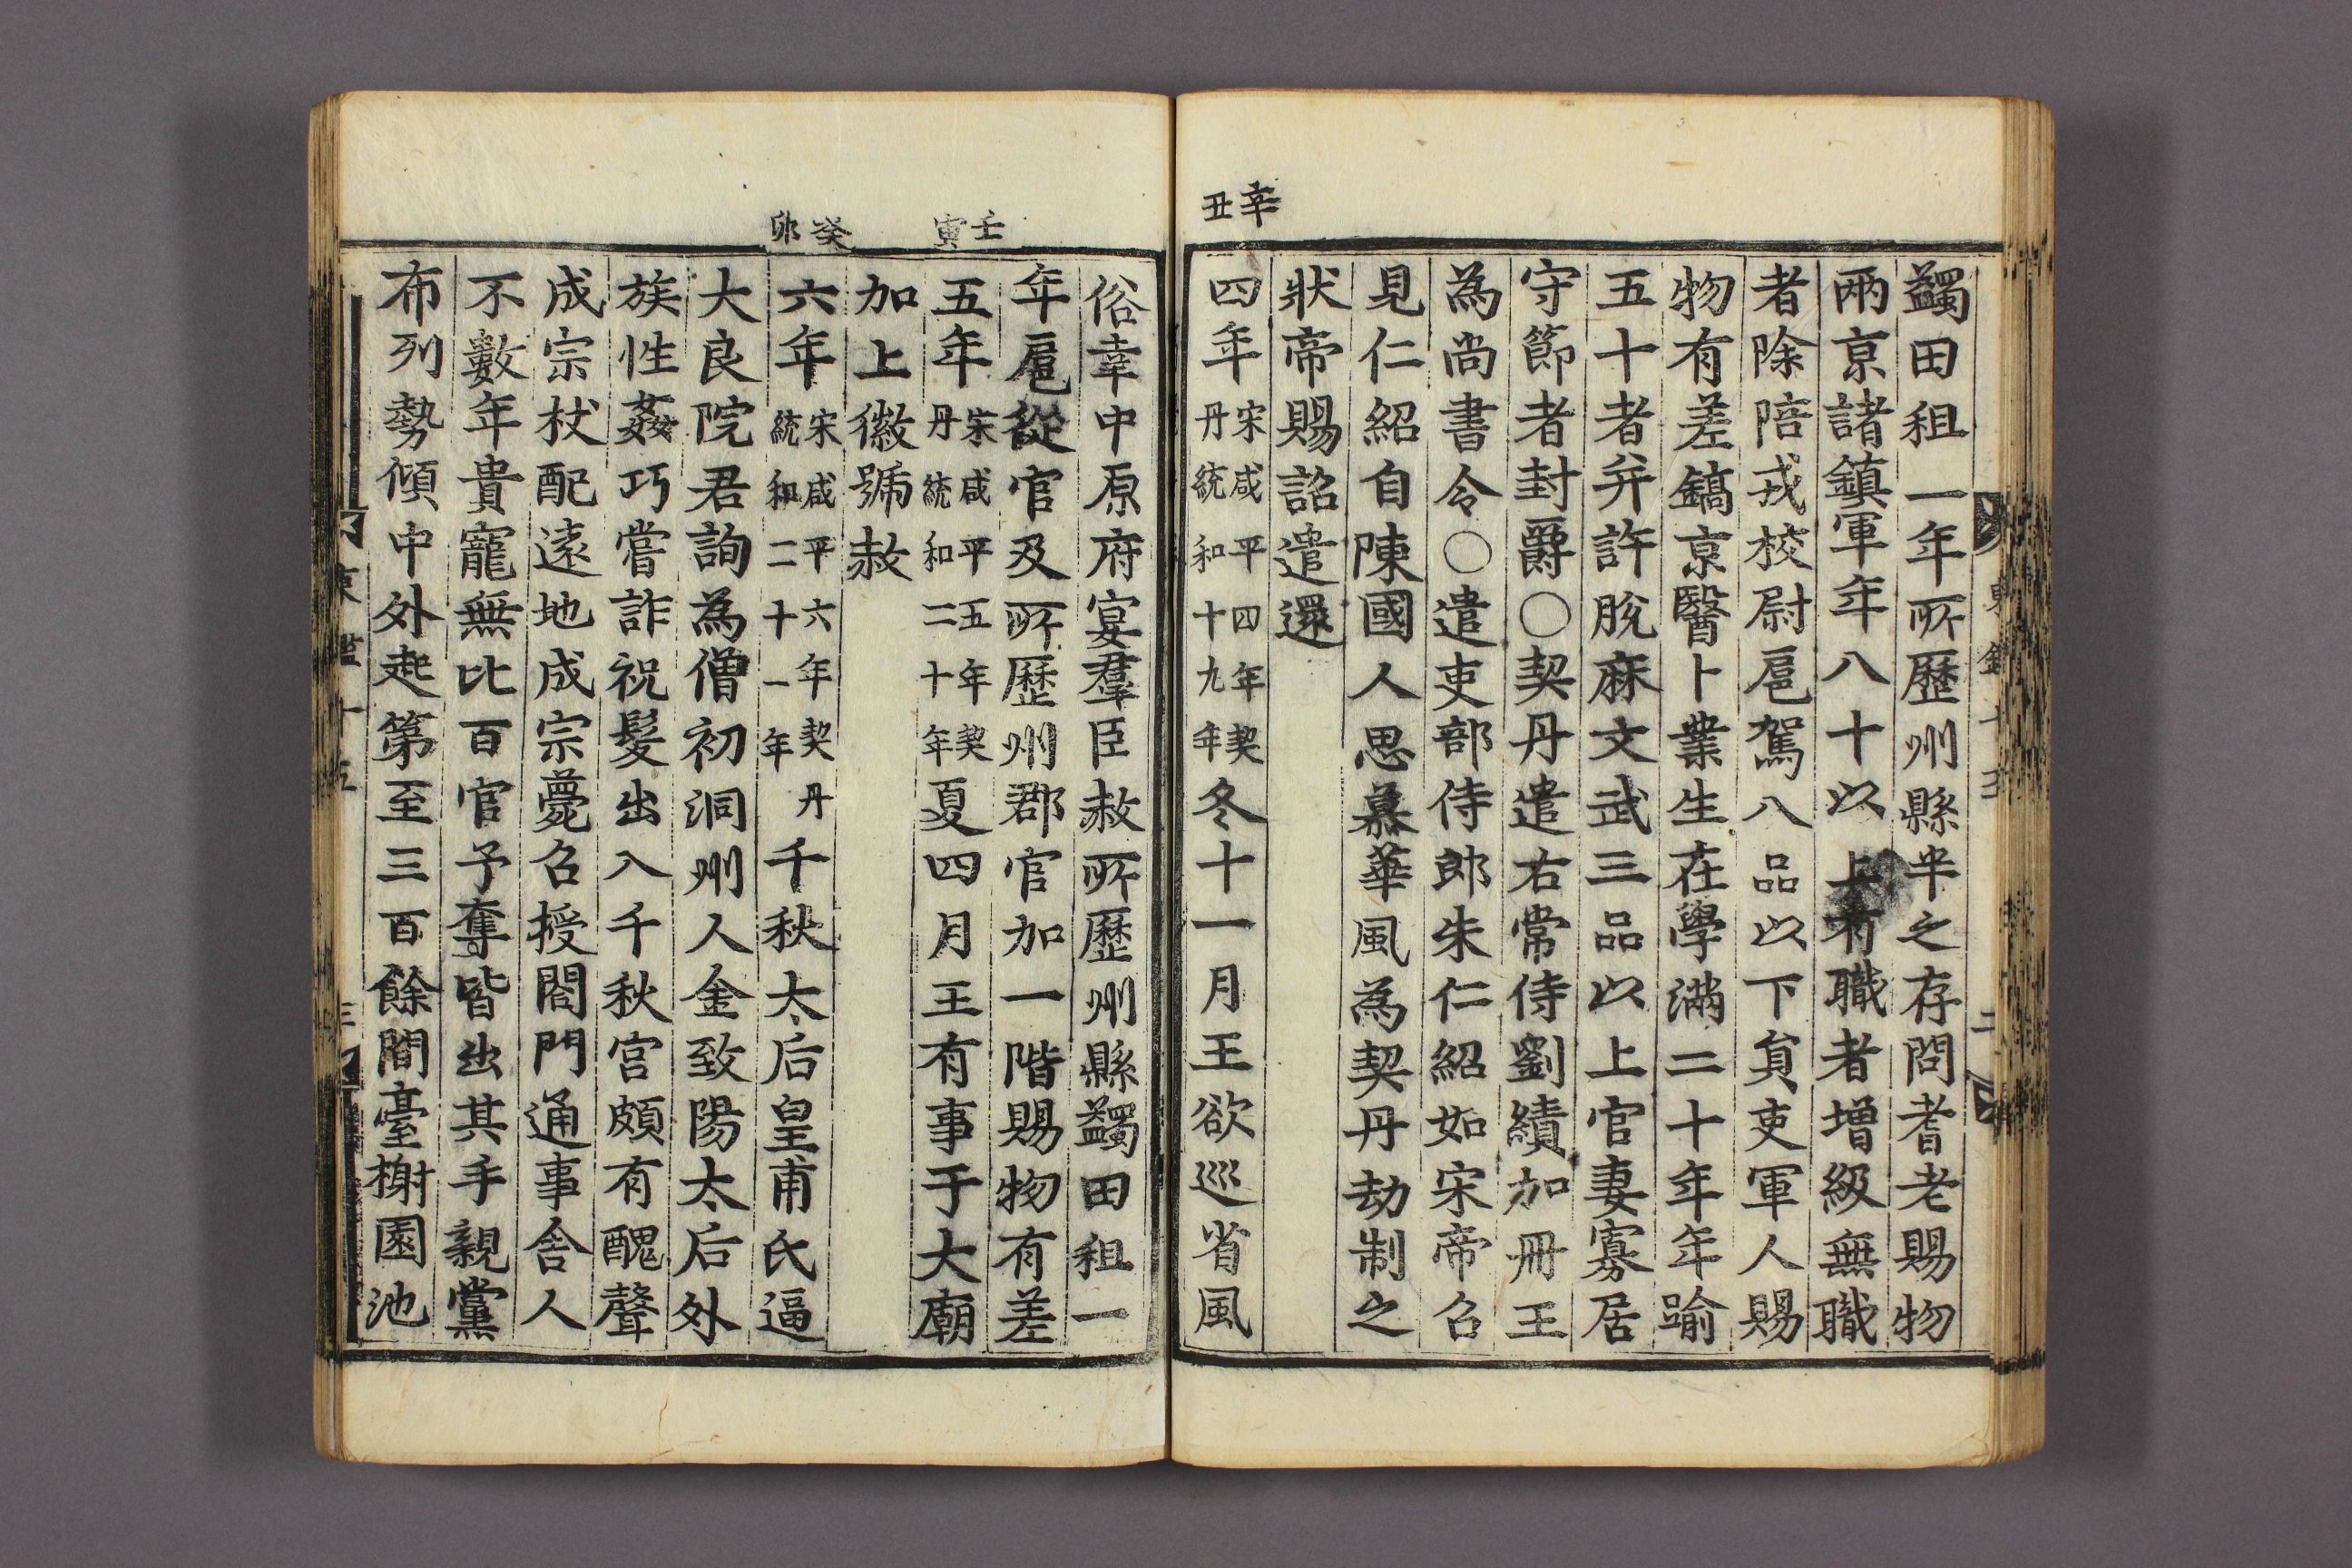 蠲田租一年所歷州縣半之存問耆老賜物
兩京諸鎮軍年八十以上有職者增級無職
者除陪戎校尉扈駕八品以下負吏軍人賜
物有差鎬京醫卜業生在學滿二十年年踰
五十者并許脫麻文武三品以上官妻寡居
守節者封爵○契丹遣右常侍劉績加冊王
為尚書令○遣吏部侍郎朱仁紹如宋帝召
見仁紹自陳國人思慕華風為契丹劫制之
狀帝賜詔遣還
辛丑
四年宋咸平四年契丹統和十九年冬十一月王欲巡省風
俗幸中原府宴羣臣赦所歷州縣蠲田租一
年扈從官及所歷州郡官加一階賜物有差
壬寅
五年宋咸平五年契丹統和二十年夏四月王有事于大廟
加上徽號赦
癸卯
六年宋咸平六年契丹統和二十一年千秋太后皇甫氏逼
大良院君詢為僧初洞州人金致陽太后外
族性姦巧嘗詐祝髮出入千秋宮頗有醜聲
成宗杖配遠地成宗薨召授閤門通事舍人
不數年貴寵無比百官予奪皆出其手親黨
布列勢傾中外起第至三百餘間臺榭園池